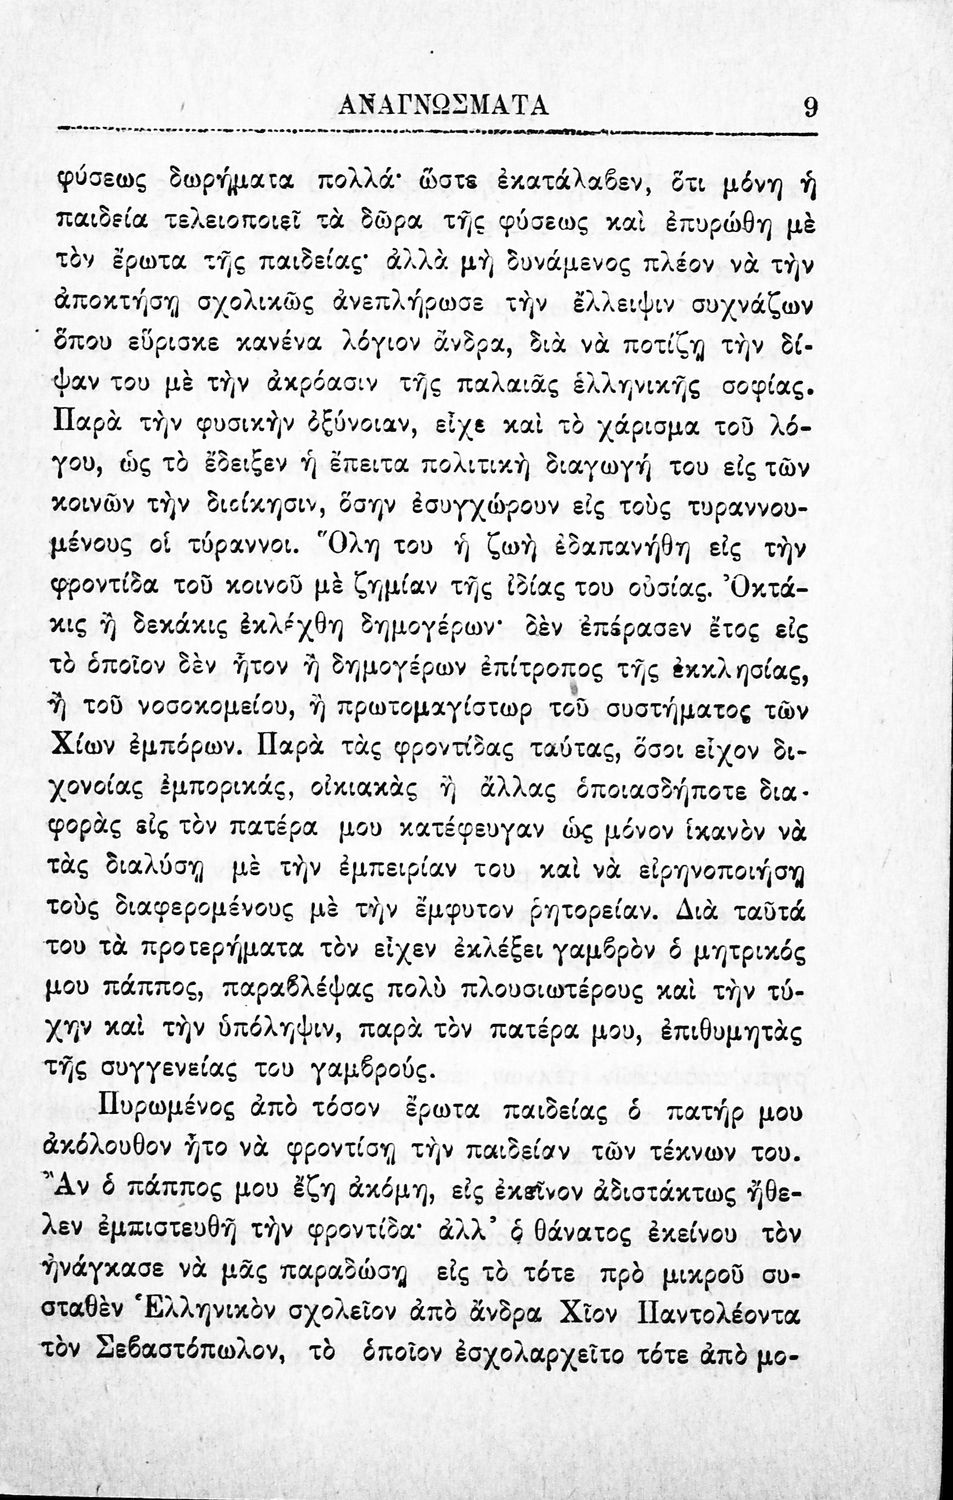 ΑΝΑΓΝΩΣΜΑΤΑ 9
φύσεως δωρήματα πολλά· ὥστε ἐκατάλαβεν, ὅτι μόνη ἡ
παιδεία τελειοποιεῖ τὰ δῶρα τῆς φύσεως καὶ ἐπυρώθη μὲ
τὸν ἔρωτα τῆς παιδείας· ἀλλὰ μὴ δυνάμενος πλέον νὰ τὴν
ἀποκτήσῃ σχολικῶς ἀνεπλήρωσε τὴν ἔλλειψιν συχνάζων
ὅπου εὕρισκε κανένα λόγιον ἄνδρα, διὰ νὰ ποτίζῃ τὴν δί-
ψαν του μὲ τὴν ἀκρόασιν τῆς παλαιᾶς ἑλληνικῆς σοφίας.
Παρὰ τὴν φυσικὴν ὀξύνοιαν, εἶχε καὶ τὸ χάρισμα τοῦ λό-
γου, ὡς τὸ ἔδειξεν ἡ ἔπειτα πολιτικὴ διαγωγή του εἰς τῶν
κοινῶν τὴν διοίκησιν, ὅσην ἐσυγχώρουν εἰς τοὺς τυραννου-
μένους οἱ τύραννοι. Ὅλη του ἡ ζωὴ ἐδαπανήθη εἰς τὴν
φροντίδα τοῦ κοινοῦ μὲ ζημίαν τῆς ἰδίας του οὐσίας. Ὀκτά-
κις ἢ δεκάκις ἐκλέχθη δημογέρων· δὲν ἐπέρασεν ἔτος εἰς
τὸ ὁποῖον δὲν ἦτον ἢ δημογέρων ἐπίτροπος τῆς ἐκκλησίας,
ἢ τοῦ νοσοκομείου, ἢ πρωτομαγίστωρ τοῦ συστήματος τῶν
Χίων ἐμπόρων. Παρὰ τὰς φροντίδας ταύτας, ὅσοι εἶχον δι-
χονοίας ἐμπορικάς, οἰκιακὰς ἢ ἄλλας ὁποιασδήποτε δια-
φορὰς εἰς τὸν πατέρα μου κατέφευγαν ὡς μόνον ἱκανὸν νὰ
τὰς διαλύσῃ μὲ τὴν ἐμπειρίαν του καὶ νὰ εἰρηνοποιήσῃ
τοὺς διαφερομένους μὲ τὴν ἔμφυτον ῥητορείαν. Διὰ ταῦτά
του τὰ προτερήματα τὸν εἶχεν ἐκλέξει γαμβρὸν ὁ μητρικός
μου πάππος, παραβλέψας πολὺ πλουσιωτέρους καὶ τὴν τύ-
χην καὶ τὴν ὑπόληψιν, παρὰ τὸν πατέρα μου, ἐπιθυμητὰς
τῆς συγγενείας του γαμβρούς.
Πυρωμένος ἀπὸ τόσον ἔρωτα παιδείας ὁ πατήρ μου
ἀκόλουθον ἦτο νὰ φροντίσῃ τὴν παιδείαν τῶν τέκνων του.
Ἂν ὁ πάππος μου ἔζη ἀκόμη, εἰς ἐκεῖνον ἀδιστάκτως ἤθε-
λεν ἐμπιστευθῆ τὴν φροντίδα· ἀλλ’ ὁ θάνατος ἐκείνου τὸν
ἠνάγκασε νὰ μᾶς παραδώσῃ εἰς τὸ τότε πρὸ μικροῦ συ-
σταθὲν Ἑλληνικὸν σχολεῖον ἀπὸ ἄνδρα Χῖον Παντολέοντα
τὸν Σεβαστόπωλον, τὸ ὁποῖον ἐσχολαρχεῖτο τότε ἀπὸ μο-